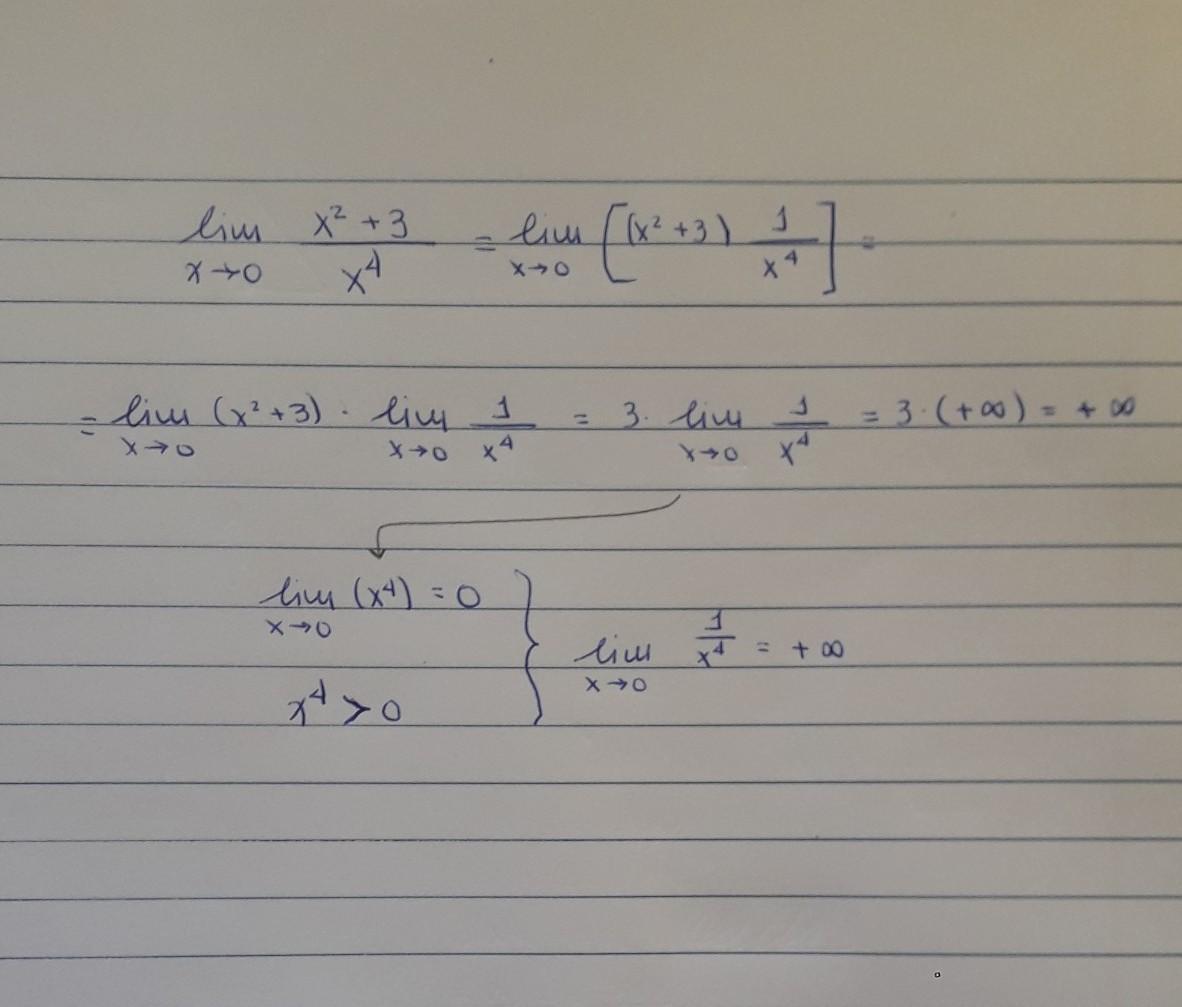 lim x→0 x² + 3 / x⁴ = lim x→0 [(x² + 3) 1/x⁴] =
= lim x→0 (x² + 3) · lim x→0 1/x⁴ = 3 · lim x→0 1/x⁴ = 3 · (+∞) = +∞
lim x→0 (x⁴) = 0
x⁴ > 0
} lim x→0 1/x⁴ = +∞